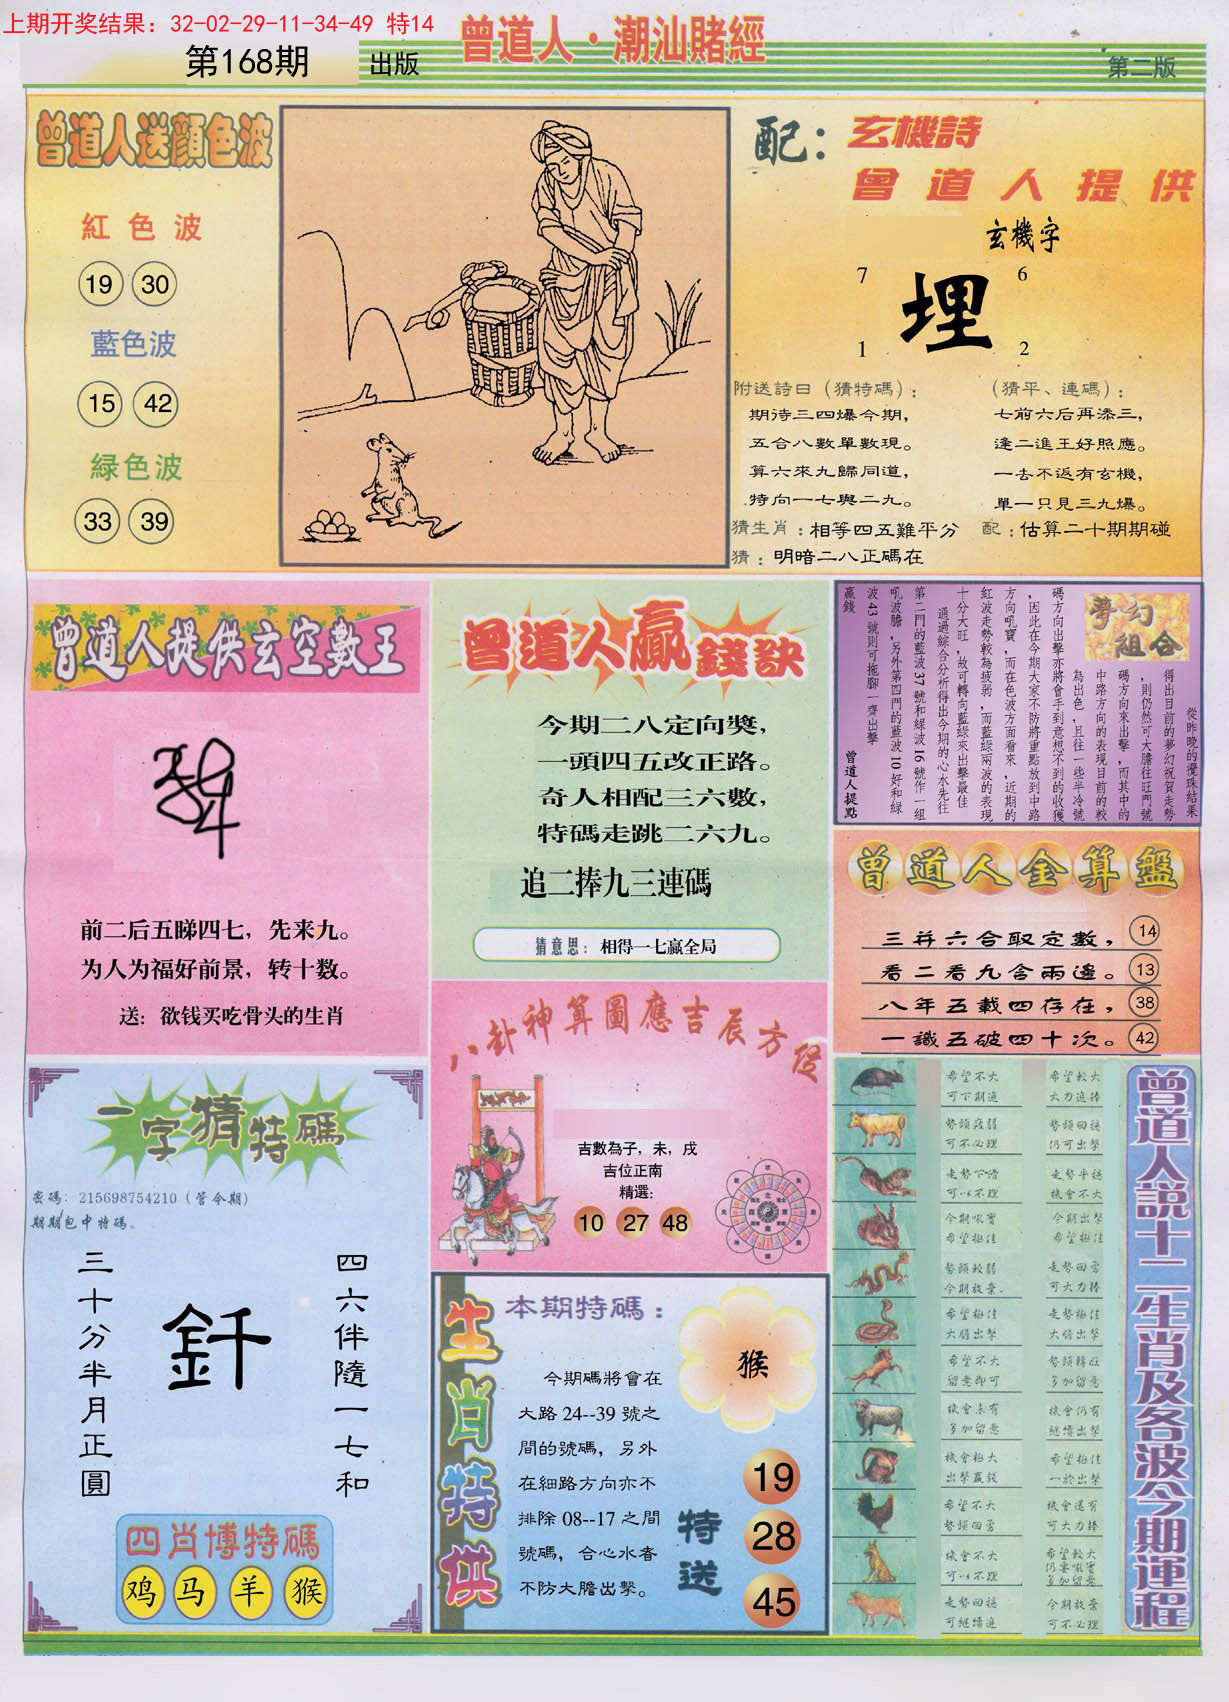 上期开奖结果：32-02-29-11-34-49 特14
第168期
出版
曾道人·潮汕賭經
第二版
曾道人送顏色波
紅色波
19 30
藍色波
15 42
緑色波
33 39
配：玄機詩
曾道人提供
玄機字
7 6
埋
1 2
附送詩曰（猜特碼）：
期待三四爆今期，
五合八數單數現。
算六來九歸同道，
特向一七與二九。
（猜平、連碼）：
七前六后再添三，
逢二進王好照應。
一去不返有玄機，
單一只見三九爆。
猜生肖：相等四五難平分
配：估算二十期期碰
猜：明暗二八正碼在
曾道人提供玄空數王
前二后五睇四七，先来九。
为人为福好前景，转十数。
送：欲钱买吃骨头的生肖
曾道人贏錢訣
今期二八定向獎，
一頭四五改正路。
奇人相配三六數，
特碼走跳二六九。
追二捧九三連碼
猜意思：相得一七贏全局
夢幻組合
從昨晚的攪珠結果
得出目前的夢幻祝賀走勢
，則仍然可大膽往旺門號
碼方向來出擊，而其中的
中路方向的表現目前的較
為出色，且往一些半冷號
碼方向出擊亦將會手到意想不到的收獲
，因此在今期大家不防將重點放到中路
方向吼寶，而在色波方面看來，近期的
紅波走勢較為疲弱，而藍綠兩波的表現
十分大旺，故可轉向藍綠來出擊最佳
通過綜合分析得出今期的心水先往
第二門的藍波37號和綠波16號作一組
吼波膽，另外第四門的藍波10好和綠
波43號則可拖腳一齊出擊
贏錢
曾道人提點
曾道人金算盤
三并六合取定數， 14
看二看九含兩邊。 13
八年五載四存在， 38
一識五破四十次。 42
八卦神算圖應吉辰方位
吉數為子，未，戌
吉位正南
精選:
10 27 48
一字猜特碼
密碼：215698754210（管今期）
期期包中特碼。
三十分半月正圓
釬
四六伴隨一七和
四肖博特碼
鸡 马 羊 猴
生肖特供
本期特碼：
今期碼將會在
大路24--39號之
間的號碼，另外
在細路方向亦不
排除08--17之間
號碼，合心水者
不防大膽出擊。
猴
特送
19
28
45
曾道人説十二生肖及各波今期運程
希望不大
可下期追
希望較大
大力追捧
勢頭疲弱
可不必理
勢頭回穩
仍可出擊
走勢下滑
可以不理
走勢平穩
機會不大
今期吼寶
希望極佳
今期出擊
希望極佳
勢頭較弱
今期放棄.
走勢回勇
可大力捧
希望極佳
大膽出擊
走勢極佳
大膽出擊
希望不大
留意即可
勢頭轉旺
多加留意
機會未有
多加留意
機會仍有
繼續出擊
機會極大
出擊贏錢
希望極佳
一於出擊
希望不大
勢頭回勇
機會還有
可大力捧
機會不大
可以不理
希望較大
仍要吼寶
多加留意
走勢回穩
可繼續追
今期放棄
可不必理